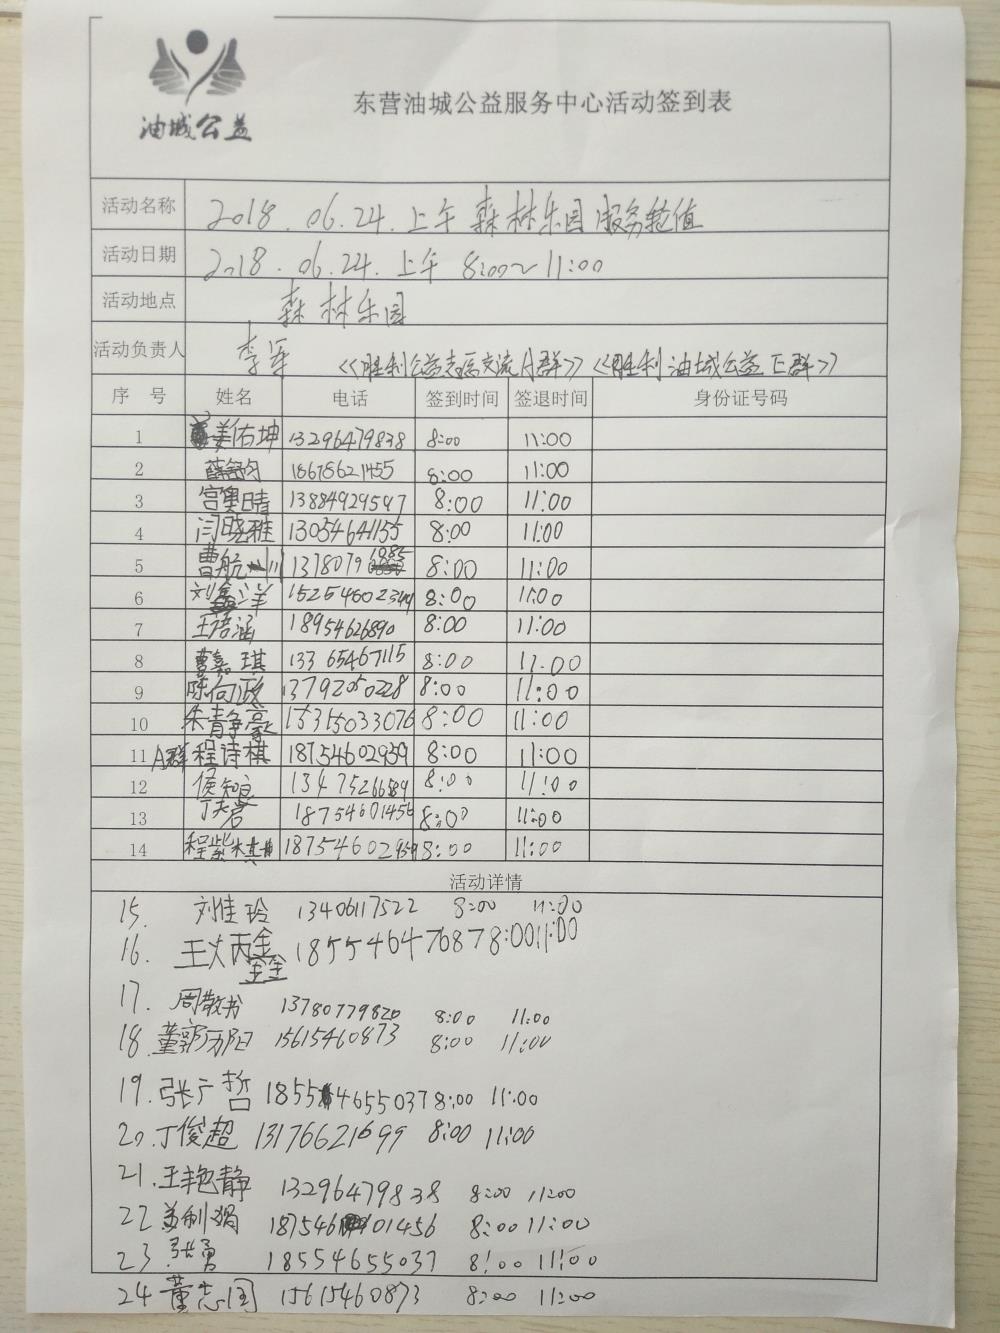 油城公益
东营油城公益服务中心活动签到表
活动名称 2018.06.24.上午 森林乐园 服务轮值
活动日期 2018.06.24.上午 8:00~11:00
活动地点 森林乐园
活动负责人 李军 《胜利公益志愿交流A群》《胜利油城公益E群》
序 号 姓名 电话 签到时间 签退时间 身份证号码
1 姜佑坤 13296479838 8:00 11:00
2 18678621455 8:00 11:00
3 宫奥晴 13884929547 8:00 11:00
4 闫晓雅 13054641155 8:00 11:00
5 曹航 1378079 8:00 11:00
6 刘鑫洋 15254602344 8:00 11:00
7 王语涵 18954626890 8:00 11:00
8 曹嘉琪 13365467115 8:00 11.00
9 陈向政 13792050228 8:00 11:00
10 朱静豪 15315033076 8:00 11:00
11 A群 程诗棋 18754602959 8:00 11:00
12 侯知良 13475266589 8:00 11:00
13 18754601456 8:00 11:00
14 程紫 18754602959 8:00 11:00
活动详情
15. 刘佳玲 13406117522 8:00 11:00
16. 王火丙金鑫 18554647687 8:00 11:00
17. 周散书 13780779820 8:00 11:00
18. 董郭历阳 15615460873 8:00 11:00
19. 张广哲 18554655037 8:00 11:00
20. 丁俊超 13176621699 8:00 11:00
21. 王艳静 13296479838 8:00 11:00
22 苏利娟 18754601456 8:00 11:00
23 张勇 18554655037 8:00 11:00
24 董志国 15615460873 8:00 11:00